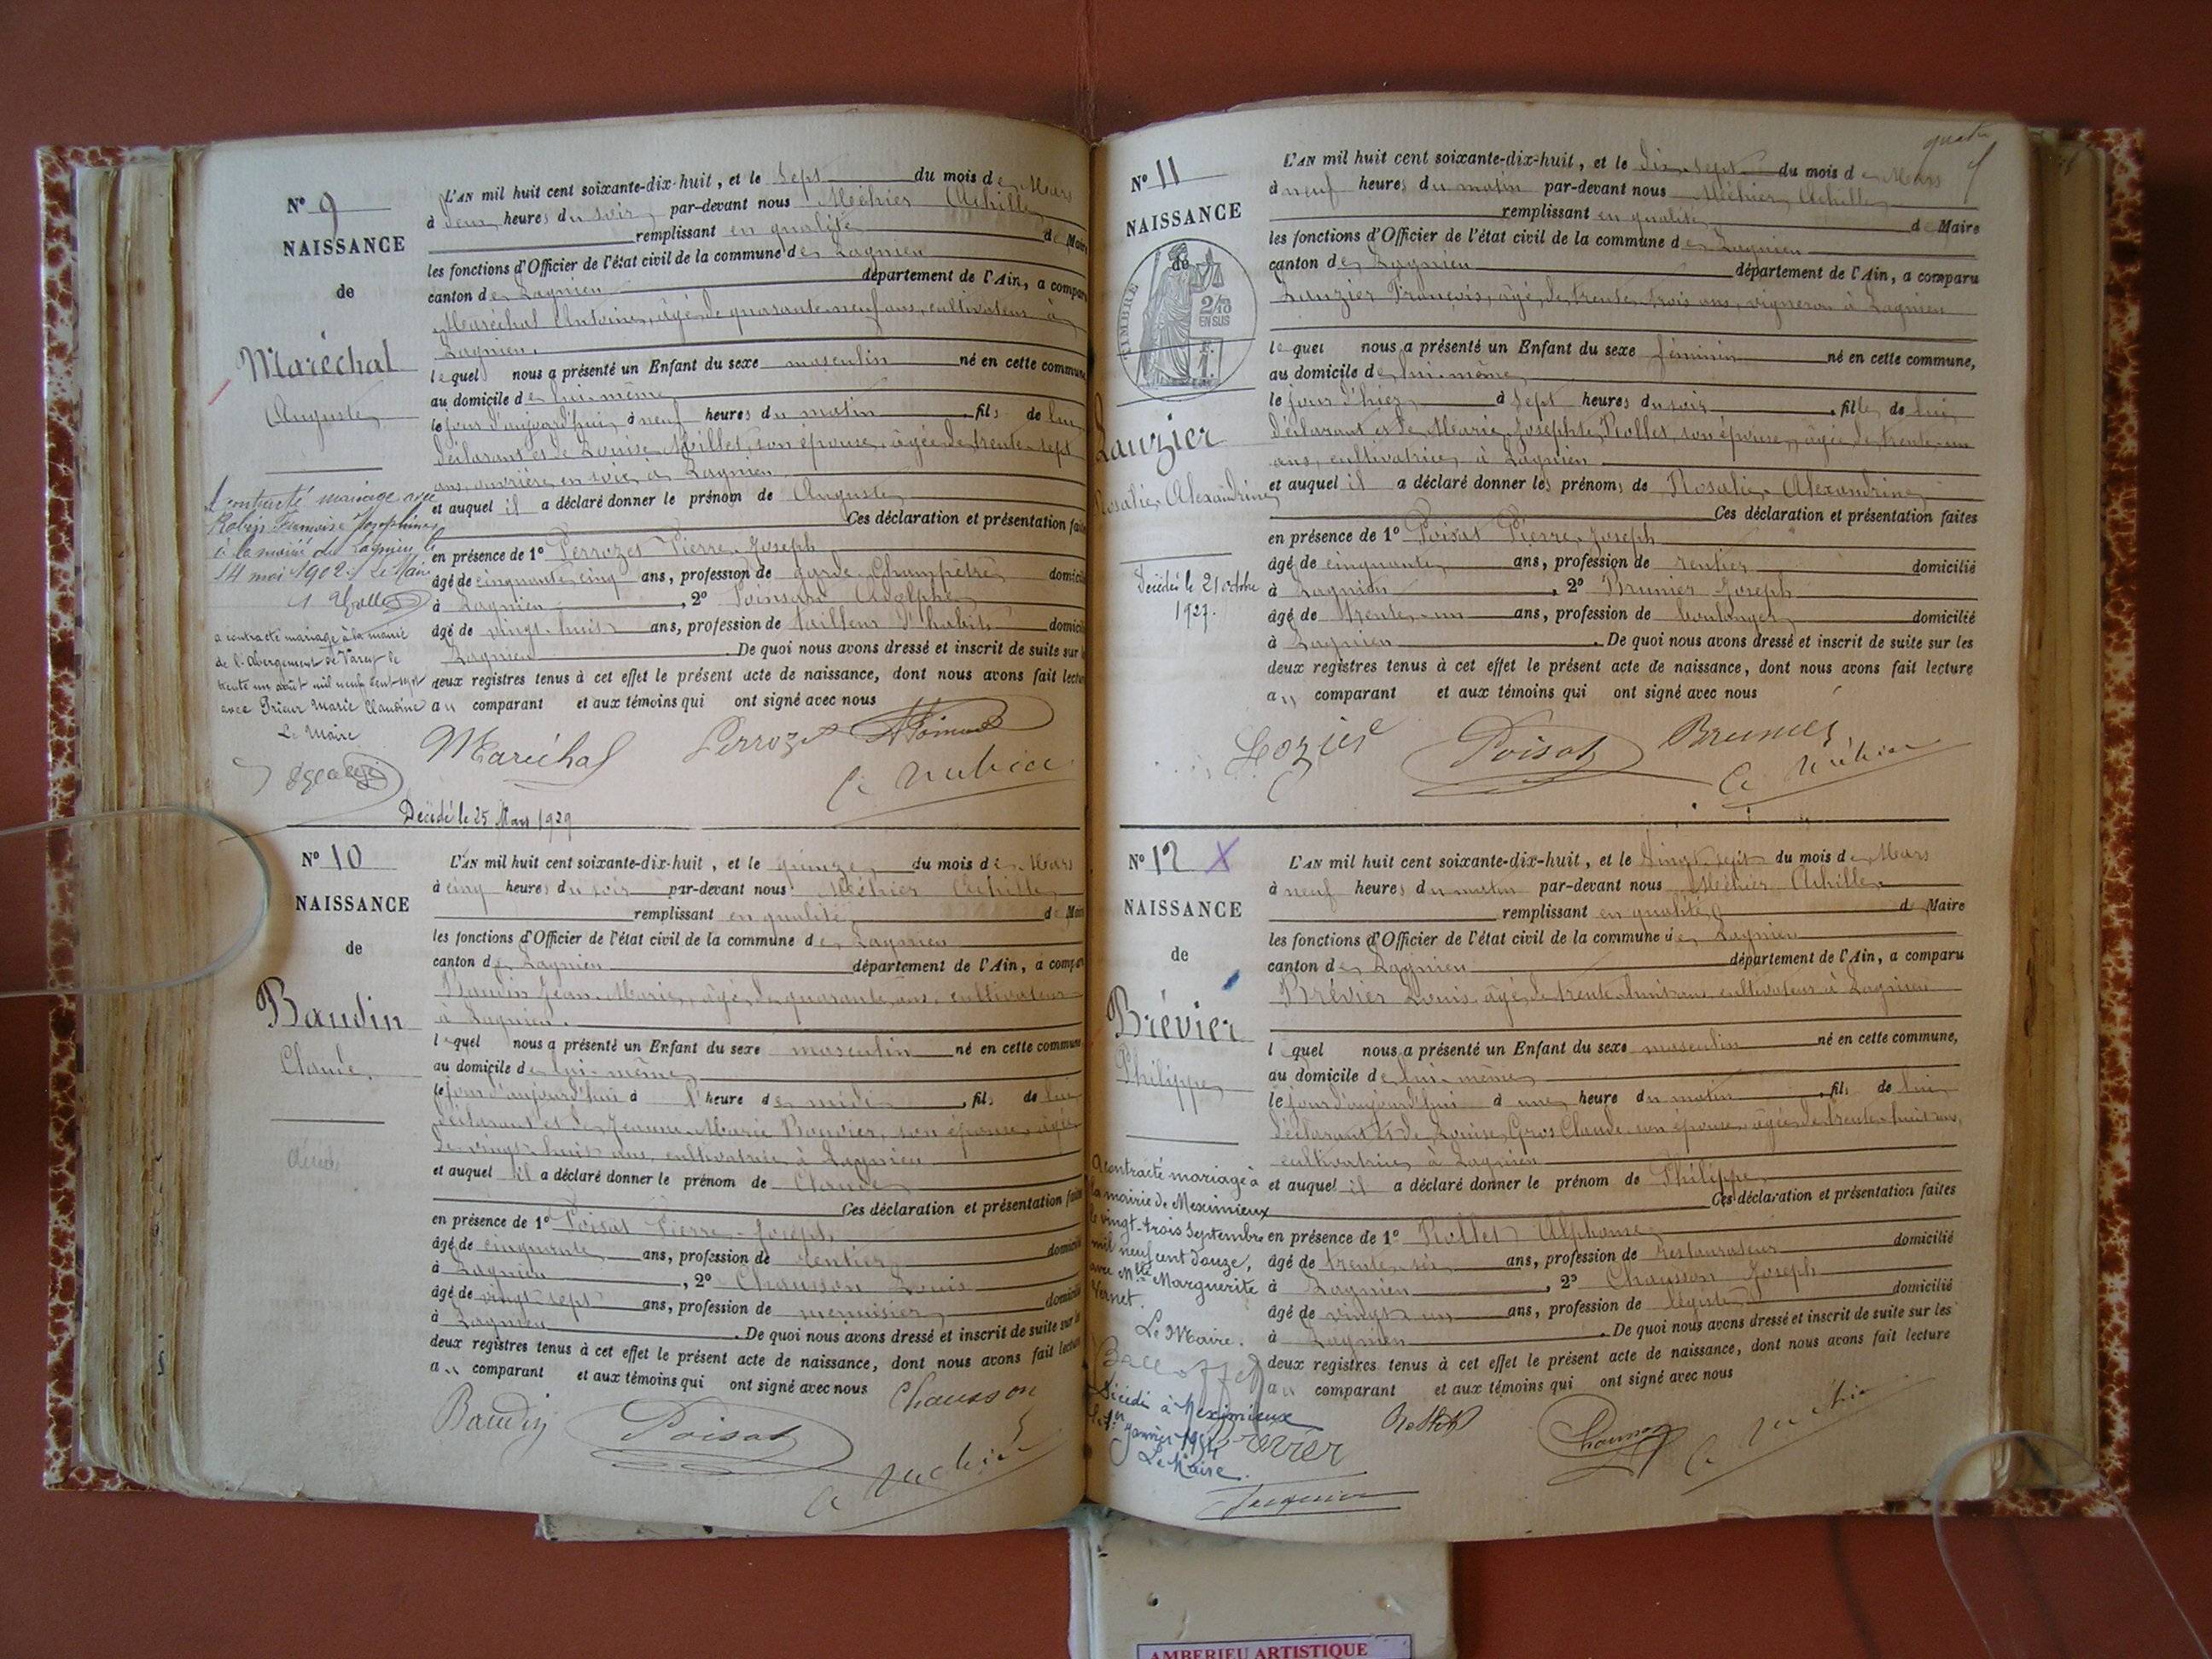 N° 9
NAISSANCE
de
Maréchal
Auguste
A contracté mariage avec
Robin Josephine
à la mairie de Lagnieu le
14 mai 1902. Le Maire
a contracté mariage à la mairie
de l'Abergement de Varey le
trente un août mil neuf cent sept
avec Prieur Marie Claudine
Le Maire
L'AN mil huit cent soixante-dix-huit, et le sept du mois de Mars
à deux heures du soir par-devant nous Méhier Achille
remplissant en qualité de Maire
les fonctions d'Officier de l'état civil de la commune de Lagnieu
canton de Lagnieu département de l'Ain, a comparu
Maréchal Antoine, âgé de quarante neuf ans, cultivateur à
Lagnieu.
lequel nous a présenté un Enfant du sexe masculin né en cette commune
au domicile de lui-même
le jour d'aujourd'hui à neuf heures du matin, fils de lui
déclarant et de Louise Millet, son épouse, âgée de trente-sept
ans, ouvrière en soie, à Lagnieu
et auquel il a déclaré donner le prénom de Auguste
Ces déclaration et présentation faites
en présence de 1° Perrozet Pierre-Joseph
âgé de cinquante cinq ans, profession de garde-Champêtre domicilié
à Lagnieu, 2° Poinsard Adolphe
âgé de vingt-huit ans, profession de tailleur d'habits domicilié
Lagnieu. De quoi nous avons dressé et inscrit de suite sur
deux registres tenus à cet effet le présent acte de naissance, dont nous avons fait lecture
au comparant et aux témoins qui ont signé avec nous
Maréchal Perrozet
Décédé le 25 Mars 1929
N° 10
NAISSANCE
de
Baudin
Claude
L'AN mil huit cent soixante-dix-huit, et le quinze du mois de Mars
à cinq heures du soir par-devant nous Méhier Achille
remplissant en qualité de Maire
les fonctions d'Officier de l'état civil de la commune de Lagnieu
canton de Lagnieu département de l'Ain, a comparu
Baudin Jean-Marie, âgé de quarante ans, cultivateur
à Lagnieu.
lequel nous a présenté un Enfant du sexe masculin né en cette commune
au domicile de lui-même
le jour d'aujourd'hui à l'heure de midi, fils de lui
déclarant et de Jeanne-Marie Bouvier, son épouse, âgée
de vingt-huit ans, cultivatrice à Lagnieu
et auquel il a déclaré donner le prénom de Claude
Ces déclaration et présentation faites
en présence de 1° Poisat Pierre-Joseph
âgé de cinquante ans, profession de rentier domicilié
à Lagnieu, 2° Chausson Louis
âgé de vingt-sept ans, profession de menuisier domicilié
à Lagnieu. De quoi nous avons dressé et inscrit de suite sur le
deux registres tenus à cet effet le présent acte de naissance, dont nous avons fait lecture
au comparant et aux témoins qui ont signé avec nous Chausson
Baudin Poisat
quatre
N° 11
NAISSANCE
de
TIMBRE
2/10
EN SUS
Lauzier
Rosalie-Alexandrine
Décédée le 21 octobre
1927.
L'AN mil huit cent soixante-dix-huit, et le dix-sept du mois de Mars
à neuf heures du matin par-devant nous Méhier Achille
remplissant en qualité de Maire
les fonctions d'Officier de l'état civil de la commune de Lagnieu
canton de Lagnieu département de l'Ain, a comparu
Lauzier François, âgé de trente-trois ans, vigneron à Lagnieu
lequel nous a présenté un Enfant du sexe féminin né en cette commune,
au domicile de lui-même
le jour d'hier à sept heures du soir, fille de lui
déclarant et de Marie Josephte Piollet, son épouse, âgée de trente-un
ans, cultivatrice, à Lagnieu
et auquel il a déclaré donner les prénoms de Rosalie-Alexandrine
Ces déclaration et présentation faites
en présence de 1° Poisat Pierre-Joseph
âgé de cinquante ans, profession de rentier domicilié
à Lagnieu, 2° Brunier Joseph
âgé de trente-un ans, profession de boulanger domicilié
à Lagnieu. De quoi nous avons dressé et inscrit de suite sur les
deux registres tenus à cet effet le présent acte de naissance, dont nous avons fait lecture
au comparant et aux témoins qui ont signé avec nous
Lozier Poisat Brunier
N° 12 X
NAISSANCE
de
Brévier
Philippe
A contracté mariage à
la mairie de Meximieux
le vingt-trois Septembre
mil neuf cent douze,
avec Mlle Marguerite
Vernet.
Le Maire.
Décédé à Meximieux
le 1er janvier 1954
Le Maire.
L'AN mil huit cent soixante-dix-huit, et le vingt-sept du mois de Mars
à neuf heures du matin par-devant nous Méhier Achille
remplissant en qualité de Maire
les fonctions d'Officier de l'état civil de la commune de Lagnieu
canton de Lagnieu département de l'Ain, a comparu
Brévier Louis, âgé de trente-huit ans, cultivateur à Lagnieu
lequel nous a présenté un Enfant du sexe masculin né en cette commune,
au domicile de lui-même
le jour d'aujourd'hui à une heure du matin, fils de lui
déclarant et de Louise Gros Claude son épouse, âgée de trente-huit ans,
cultivatrice, à Lagnieu
et auquel il a déclaré donner le prénom de Philippe
Ces déclaration et présentation faites
en présence de 1° Piollet Alphonse
âgé de trente-six ans, profession de restaurateur domicilié
à Lagnieu, 2° Chausson Joseph
âgé de vingt un ans, profession de domicilié
à Lagnieu. De quoi nous avons dressé et inscrit de suite sur les
deux registres tenus à cet effet le présent acte de naissance, dont nous avons fait lecture
au comparant et aux témoins qui ont signé avec nous
Brévier Chausson
AMBERIEU ARTISTIQUE